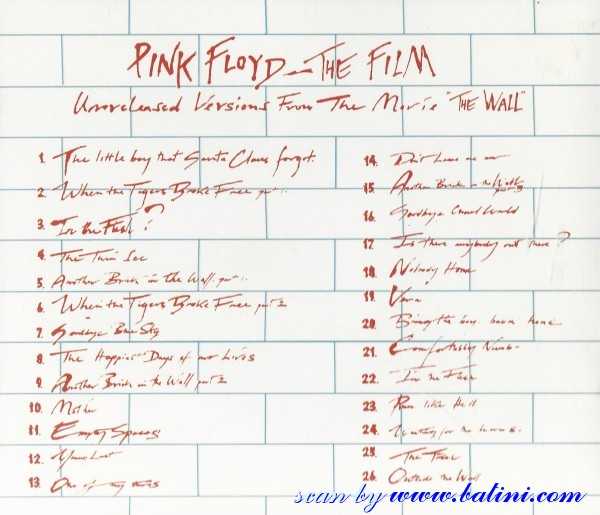 PINK FLOYD - THE FILM
Unreleased Versions From The Movie "THE WALL"
1. The little boy that Santa Claus forgot.
2. When the Tigers Broke Free part 1.
3. In the Flesh?
4. The Thin Ice
5. Another Brick in the Wall part 1.
6. When the Tigers Broke Free part 2
7. Goodbye Blue Sky
8. The Happiest Days of our Lives
9. Another Brick in the Wall part 2
10. Mother
11. Empty Spaces
12. Young Lust
13. One of my turns
14. Don't leave me now.
15. Another Brick in the Wall part 3
16. Goodbye Cruel World
17. Is there anybody out there?
18. Nobody Home
19. Vera
20. Bring the boys back home
21. Comfortably Numb
22. In the Flesh
23. Run like Hell
24. Waiting for the worms.
25. The Trial
26. Outside the Wall
scan by www.batini.com